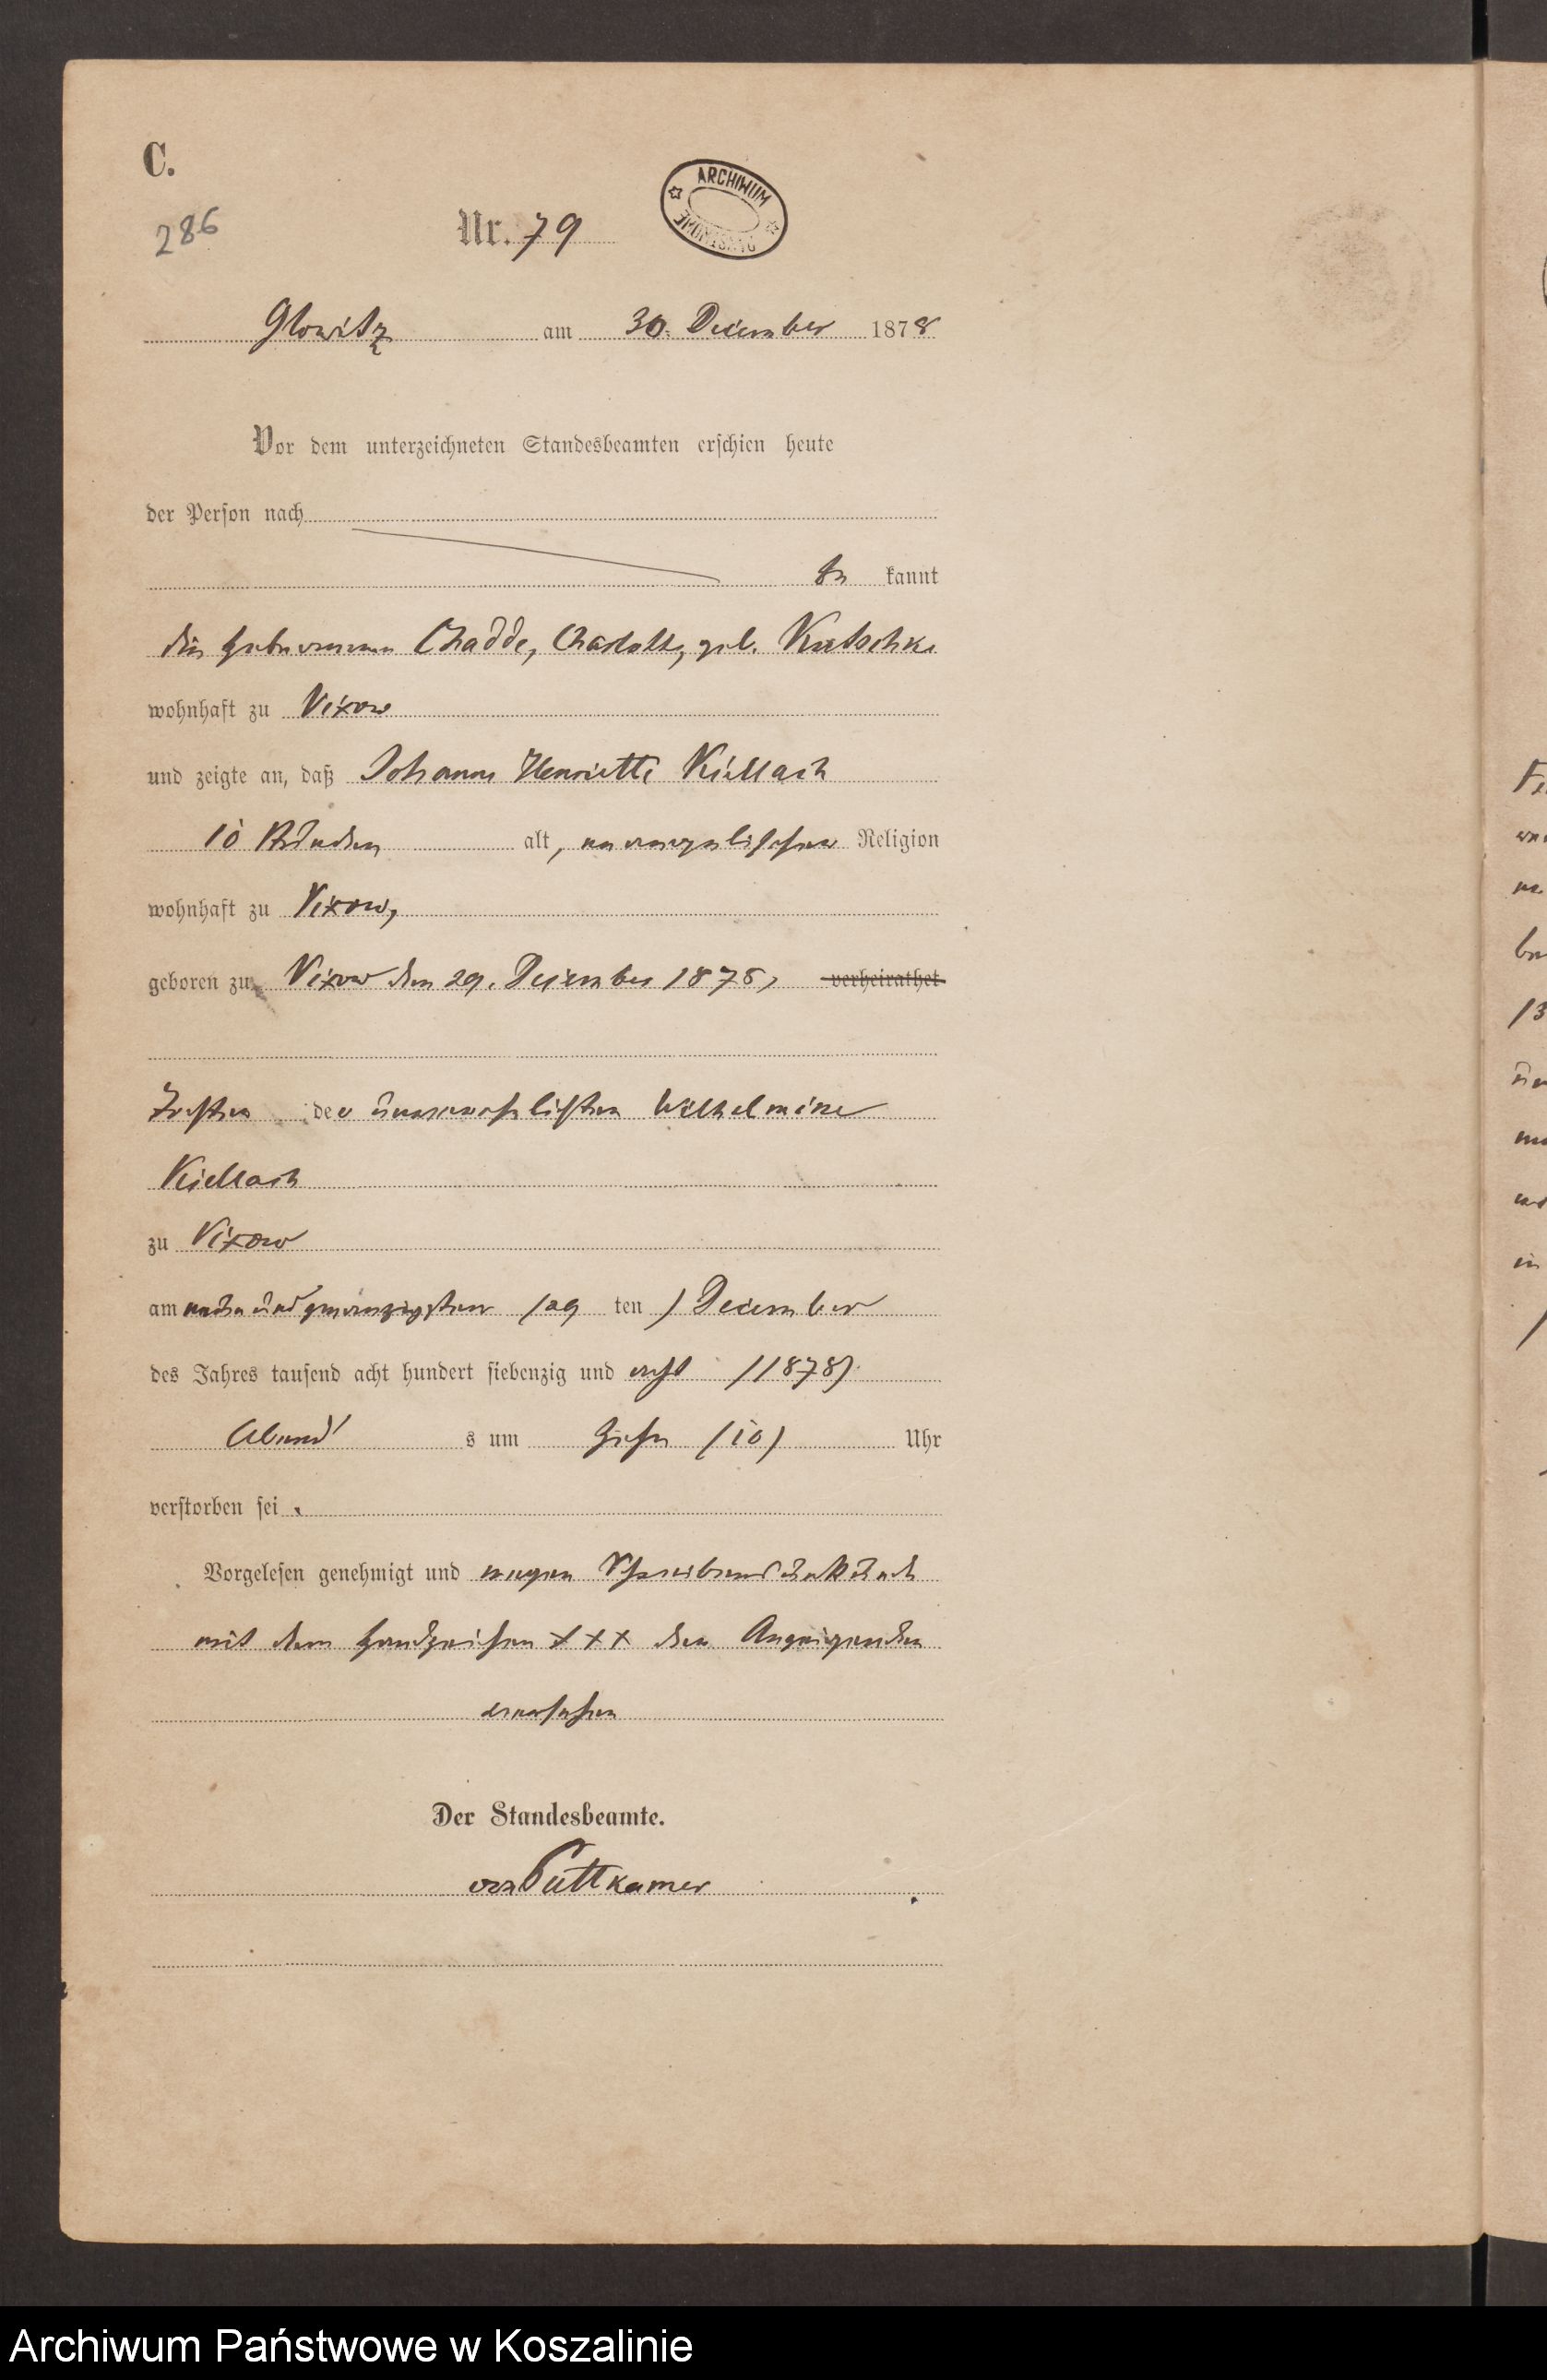 C.
286
Nr. 79
ARCHIWUM
PAŃSTWOWE
Glowitz am 30. December 1878
Vor dem unterzeichneten Standesbeamten erschien heute
der Person nach
be kannt
die Hebeamme Chadde, Charlotte, geb. Kutschke
wohnhaft zu Vixow
und zeigte an, daß Johanne Henriette Kiellach
10 Stunden alt, evangelischer Religion
wohnhaft zu Vixow,
geboren zu Vixow den 29. December 1878, verheirathet
Tochter der unverehelichten Wilhelmine
Kiellach
zu Vixow
am neun und zwanzigsten (29 ten) December
des Jahres tausend acht hundert siebenzig und acht (1878)
Abend s um Zehn (10) Uhr
verstorben sei.
Vorgelesen genehmigt und wegen Schreibensunkunde
mit dem Handzeichen XXX der Anzeigenden
versehen
Der Standesbeamte.
von Puttkamer
Archiwum Państwowe w Koszalinie